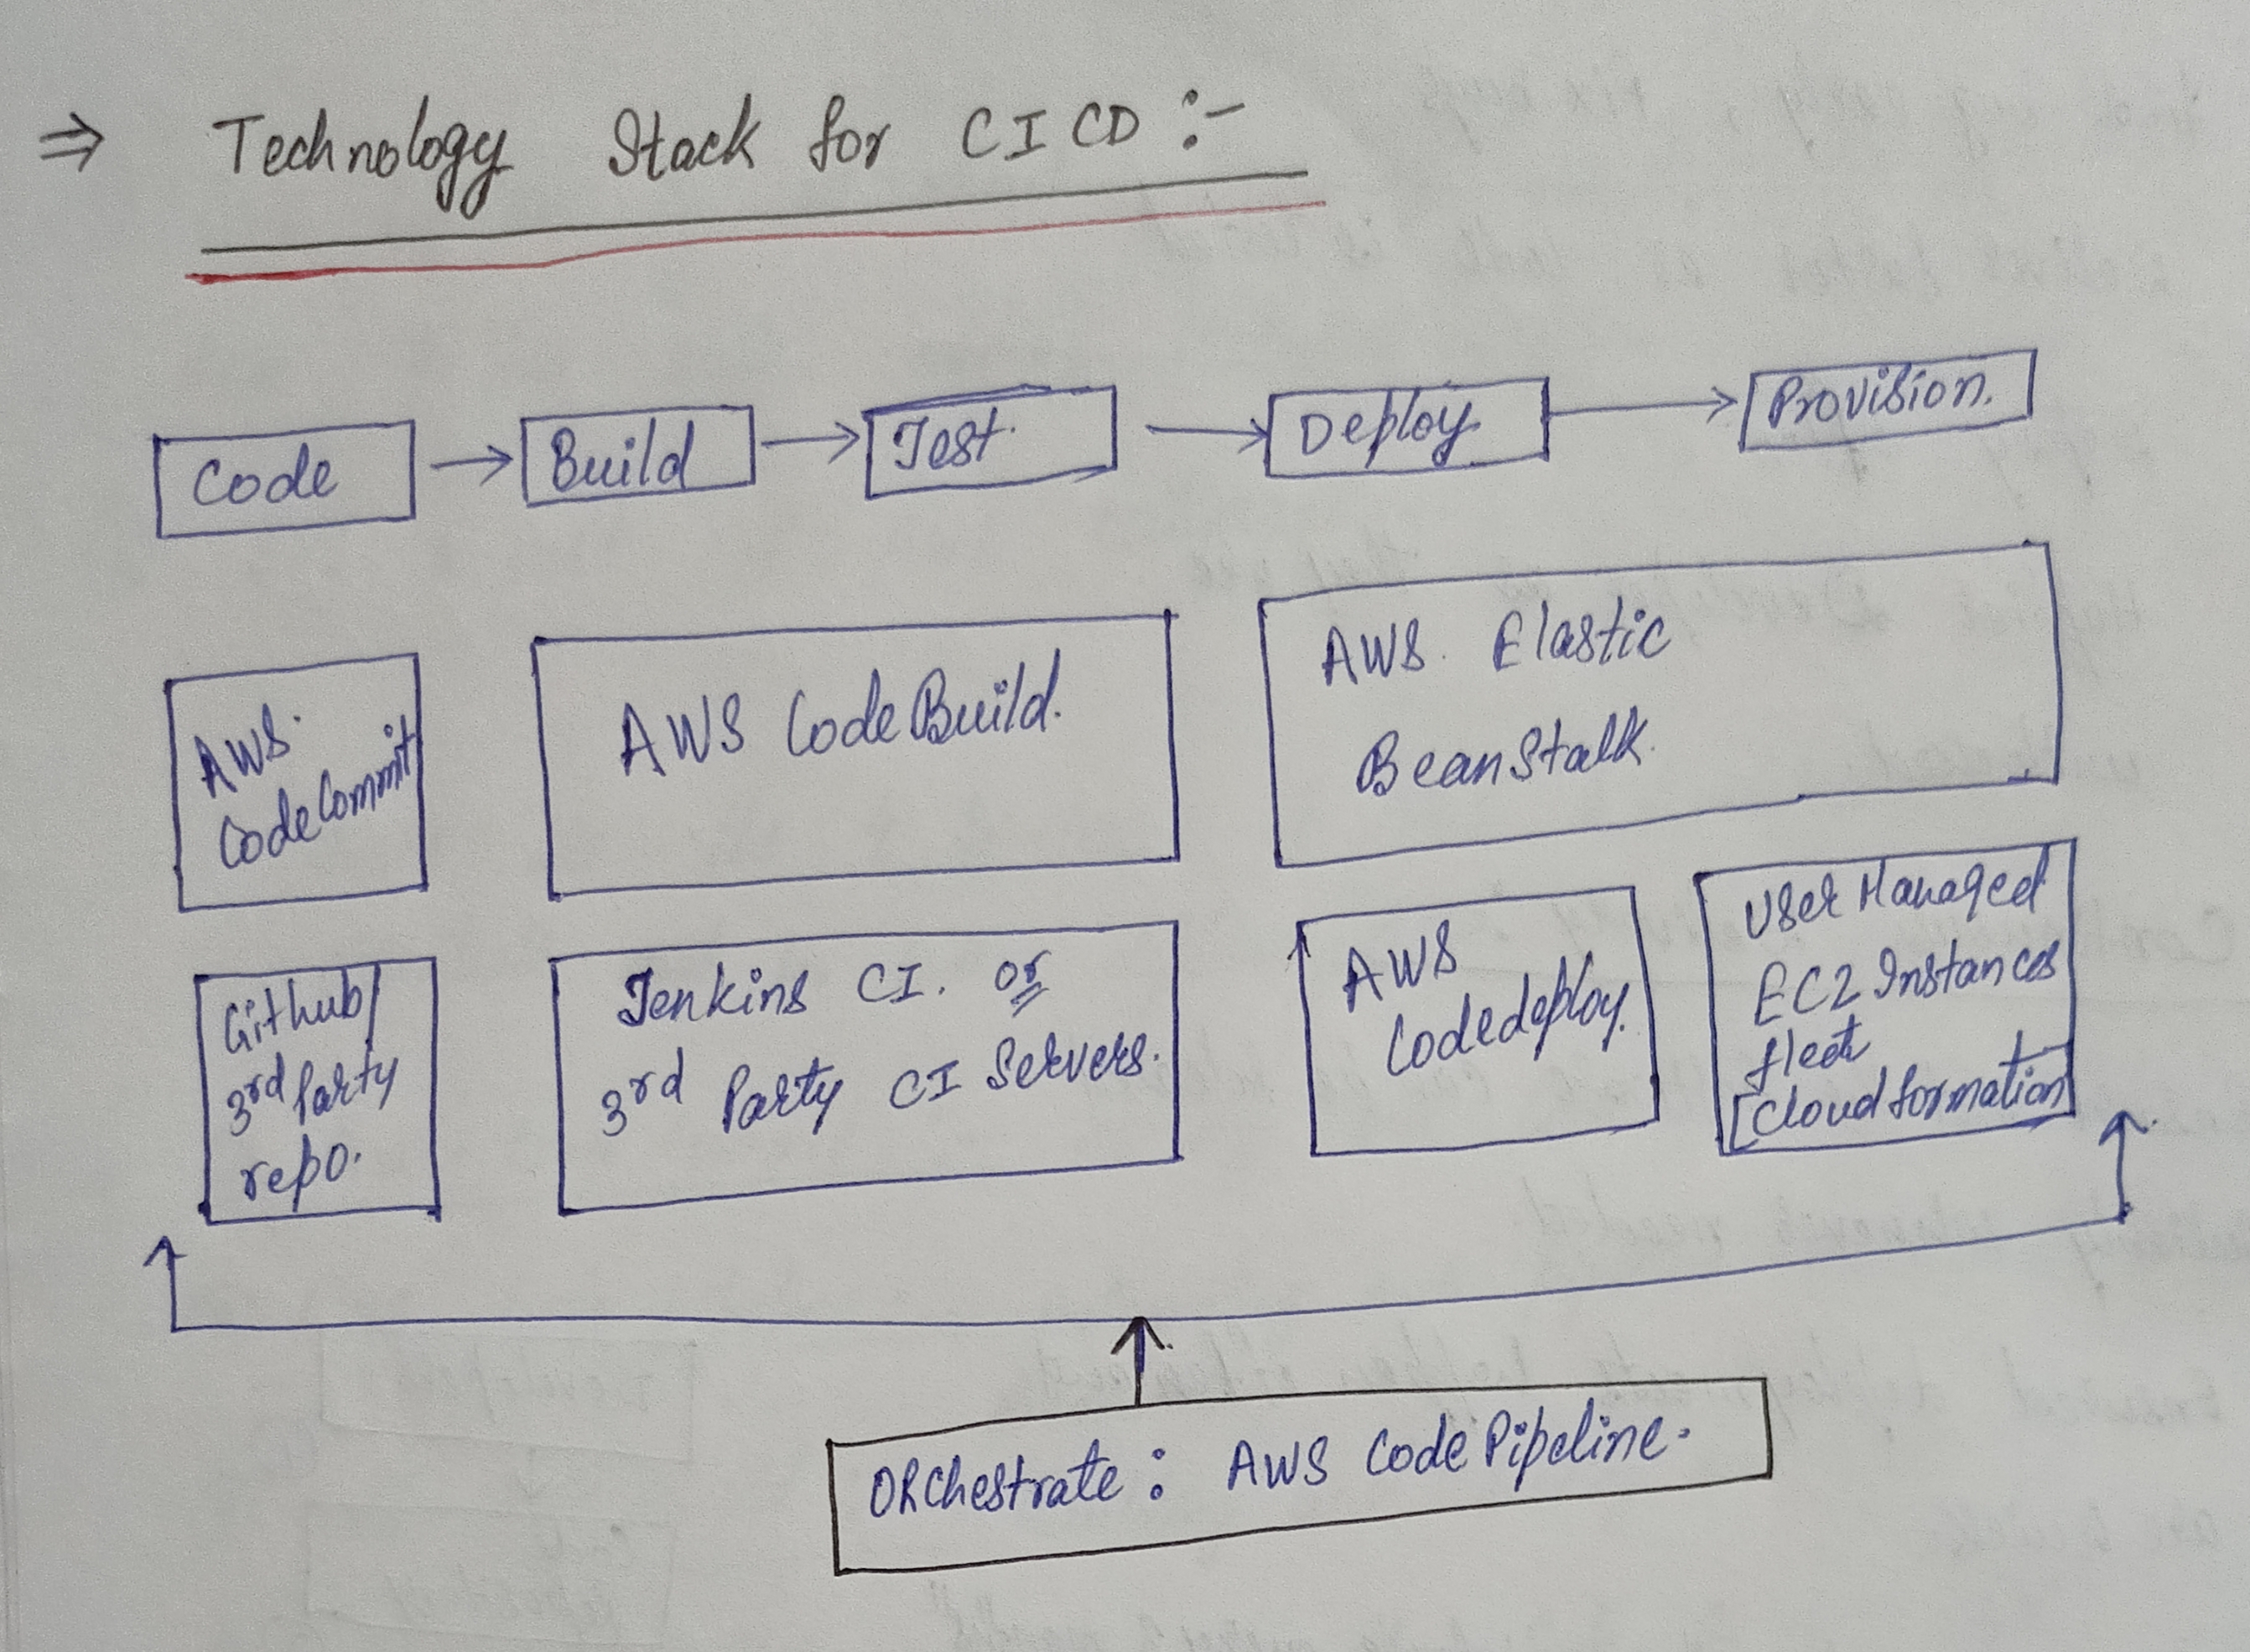 ⇒ Technology Stack for CI CD :-
Code → Build → Test. → Deploy. → Provision.
AWS.
CodeCommit
AWS CodeBuild.
AWS. Elastic
BeanStalk.
Github/
3rd Party
repo.
Jenkins CI. or
3rd Party CI Servers.
AWS
Codedeploy.
User Managed
EC2 Instances
fleet
[Cloudformation
Orchestrate : AWS Code Pipeline.